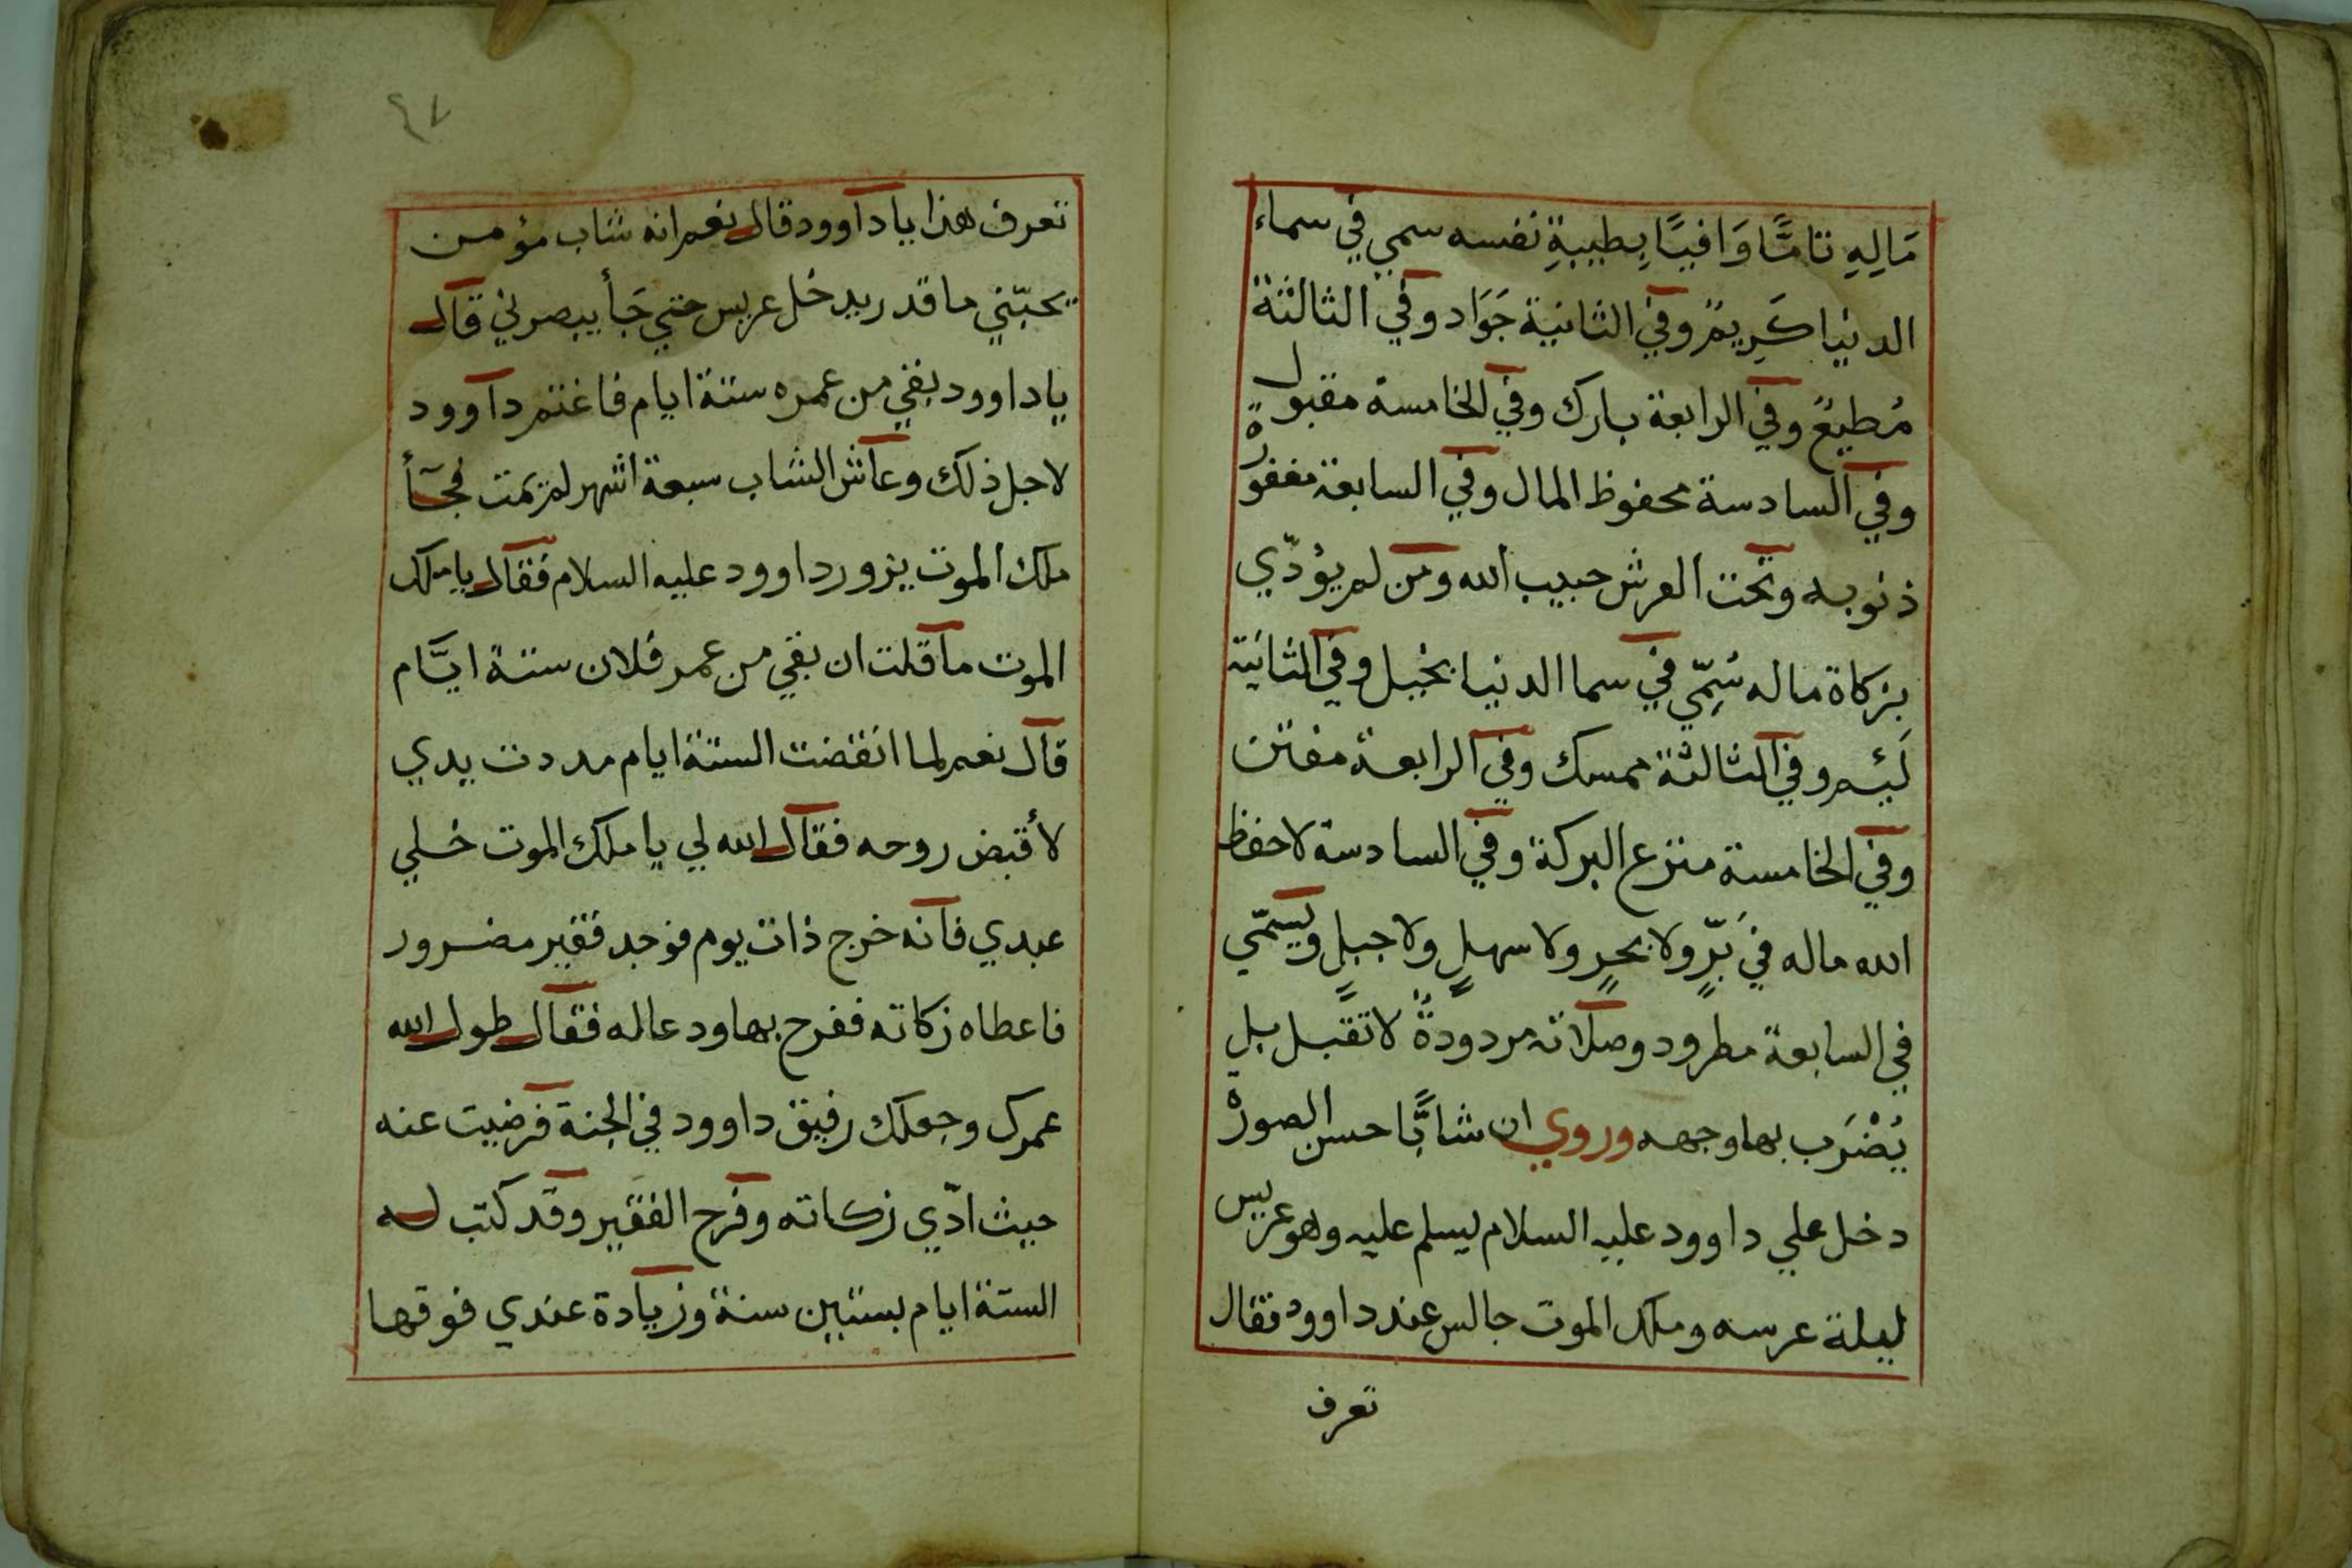 مَالِهِ تامًّا وَافيًا بِطيبةِ نفسه سمي في سماء
الدنيا كَرِيمٌ وفي الثانية جَوَاد وفي الثالثة
مُطيعٌ وفي الرابعة بارك وفي الخامسة مقبول
وفي السادسة محفوظ المال وفي السابعة مغفورة
ذنوبه وتحت العرش حبيب الله ومن لم يؤدّي
بزكاة ماله سُمِّي في سما الدنيا بخيل وفي الثانية
لَئيم وفي الثالثة ممسك وفي الرابعة مفتن
وفي الخامسة منزع البركة وفي السادسة لا حفظ
الله ماله في بَرٍّ ولا بحرٍ ولا سهلٍ ولا جبلٍ ويسمّي
في السابعة مطرود وصلاته مردودةً لا تقبل بل
يُضْرَب بها وجهه وروي ان شابًّا حسن الصورة
دخل علي داوود عليه السلام ليسلم عليه وهو عريس
ليلة عرسه وملك الموت جالس عند داوود فقال
تعرف
٤٧
تعرف هذا يا داوود قال نعم انه شاب مؤمن
يحبّني ما قدر يدخل عريس حتي جَأ يبصرني قال
يا داوود بقي من عمره ستة ايام فاغتم داوود
لاجل ذلك وعاش الشاب سبعة اشهر لم يمت فجأ
ملك الموت يزور داوود عليه السلام فقال يا ملك
الموت ما قلت ان بقي من عمر فلان ستة ايَّام
قال نعم لما انقضت الستة ايام مددت يدي
لأقبض روحه فقال الله لي يا ملك الموت خلي
عبدي فانه خرج ذات يوم فوجد فقير مضرور
فاعطاه زكاته ففرح بها ودعا له فقال طول الله
عمرك وجعلك رفيق داوود في الجنة فرضيت عنه
حيث ادّي زكاته وفرح الفقير وقد كتب له
الستة ايام بستين سنة وزيادة عندي فوقها